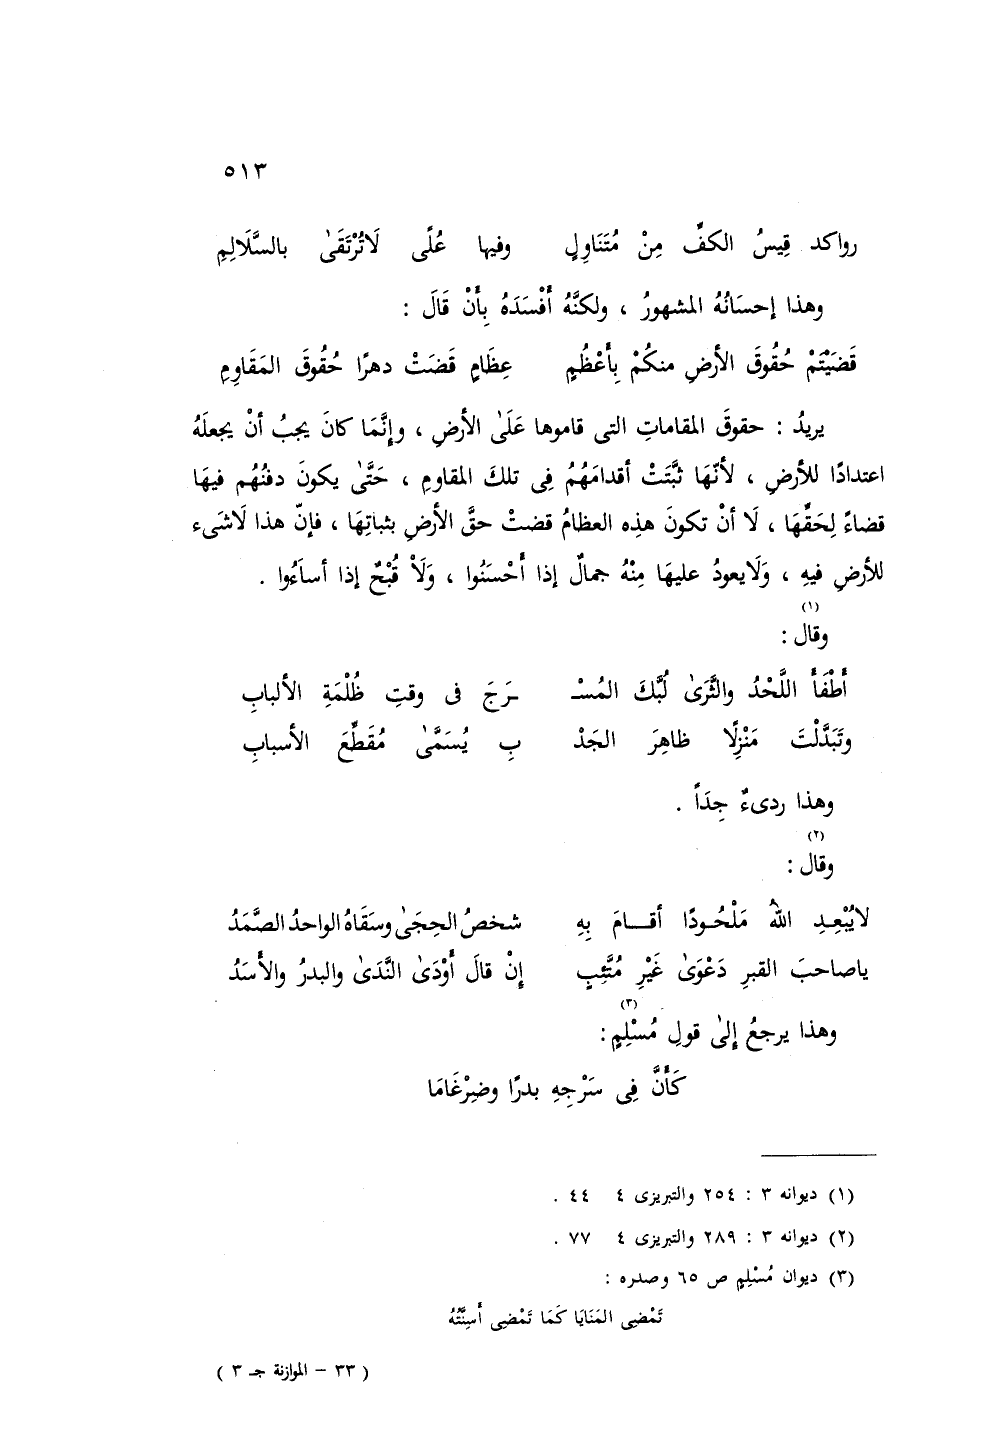 ٥١٣
رواكد قِيسُ الكفِّ مِنْ مُتَنَاوِلٍ وفيها عُلًى لَاتُرْتَقَىٰ بالسَّلَالِمِ
وهذا إحسَانُهُ المشهورُ ، ولكنَّهُ أَفْسَدَهُ بِأَنْ قَالَ :
قَضَيْتَمْ حُقُوقَ الأرضِ منكُمْ بِأَعْظُمٍ عِظَامٍ قَضَتْ دهرًا حُقُوقَ المَقَاوِمِ
يريدُ : حقوقَ المقاماتِ التى قاموها عَلَىٰ الأرضِ ، وإنَّمَا كانَ يجبُ أنْ يجعلَهُ
اعتدادًا للأرضِ ، لأنّهَا ثبَّتَتْ أقدامَهُمُ فِى تلكَ المقاومِ ، حَتَّىٰ يكونَ دفنُهُم فيهَا
قضاءً لِحَقِّهَا ، لَا أنْ تكونَ هذِه العظامُ قضتْ حقَّ الأرضِ بثباتِهَا ، فإنّ هذا لَاشَىء
للأرضِ فيهِ ، وَلَايعودُ عليهَا مِنْهُ جمالٌ إذا أَحْسَنُوا ، وَلَاْ قُبْحٌ إذا أساءُوا .
وقال (١) :
أَطْفَأَ اللَّحْدُ والثَّرَىٰ لُبَّكَ المُسْـ ـرَجَ فى وقتِ ظُلْمَةِ الألبابِ
وتَبَدَّلْتَ مَنْزِلًا ظاهِرَ الجَدْ بِ يُسَمَّىٰ مُقَطِّعَ الأسبابِ
وهذا ردىءٌ جِدَاً .
وقال (٢) :
لايُبْعِدِ اللهُ مَلْحُودًا أقــامَ بِهِ شخصُ الحِجَىٰ وسَقَاهُ الواحدُ الصَّمَدُ
ياصاحبَ القبرِ دَعْوَىٰ غَيْرِ مُتَّئِبٍ إنْ قالَ أَوْدَىٰ النَّدَىٰ والبدرُ والأَسَدُ
وهذا يرجعُ إلىٰ قولِ مُسْلِمٍ (٣) :
كَأَنَّ فِى سَرْجِهِ بدرًا وضِرْغَامَا
(١) ديوانه ٣ : ٢٥٤ والتبريزى ٤ ٤٤ .
(٢) ديوانه ٣ : ٢٨٩ والتبريزى ٤ ٧٧ .
(٣) ديوان مُسْلِمٍ ص ٦٥ وصدره :
تَمْضِى المَنَايَا كَمَا تَمْضِى أَسِنَّتُهُ
( ٣٣ – الموازنة جـ ٣ )